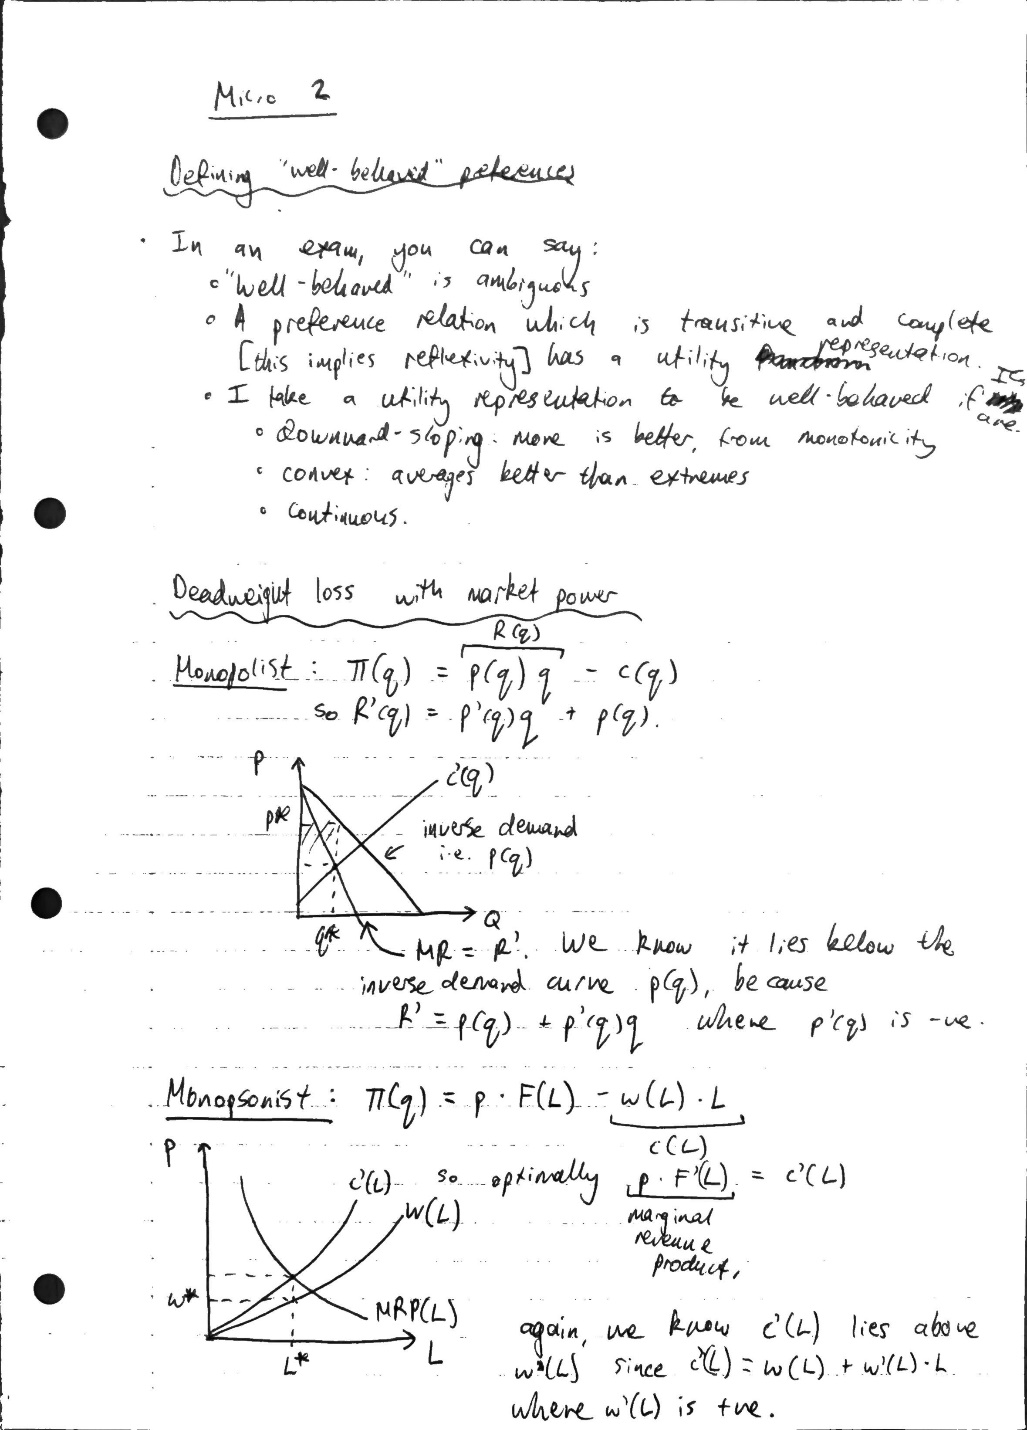 Micro 2
Defining "well-behaved" preferences
· In an exam, you can say:
∘ "Well-behaved" is ambiguous
∘ A preference relation which is transitive and complete
[this implies reflexivity] has a utility representation.
∘ I take a utility representation to be well-behaved if ICs are.
∘ Downward-sloping: more is better, from monotonicity
∘ convex: averages better than extremes
∘ continuous.
Deadweight loss with market power
R(q)
Monopolist: π(q) = p(q) q - c(q)
so R'(q) = p'(q)q + p(q).
P
c'(q)
p*
inverse demand
i.e. p(q)
Q
q*
MR = R'. We know it lies below the
inverse demand curve p(q), because
R' = p(q) + p'(q)q where p'(q) is -ve.
Monopsonist: π(q) = p · F(L) - w(L) · L
c(L)
P
c'(L) so optimally p · F'(L) = c'(L)
w(L)
marginal
revenue
product,
w*
MRP(L)
L
L*
again, we know c'(L) lies above
w(L) since c'(L) = w(L) + w'(L)·L
where w'(L) is +ve.